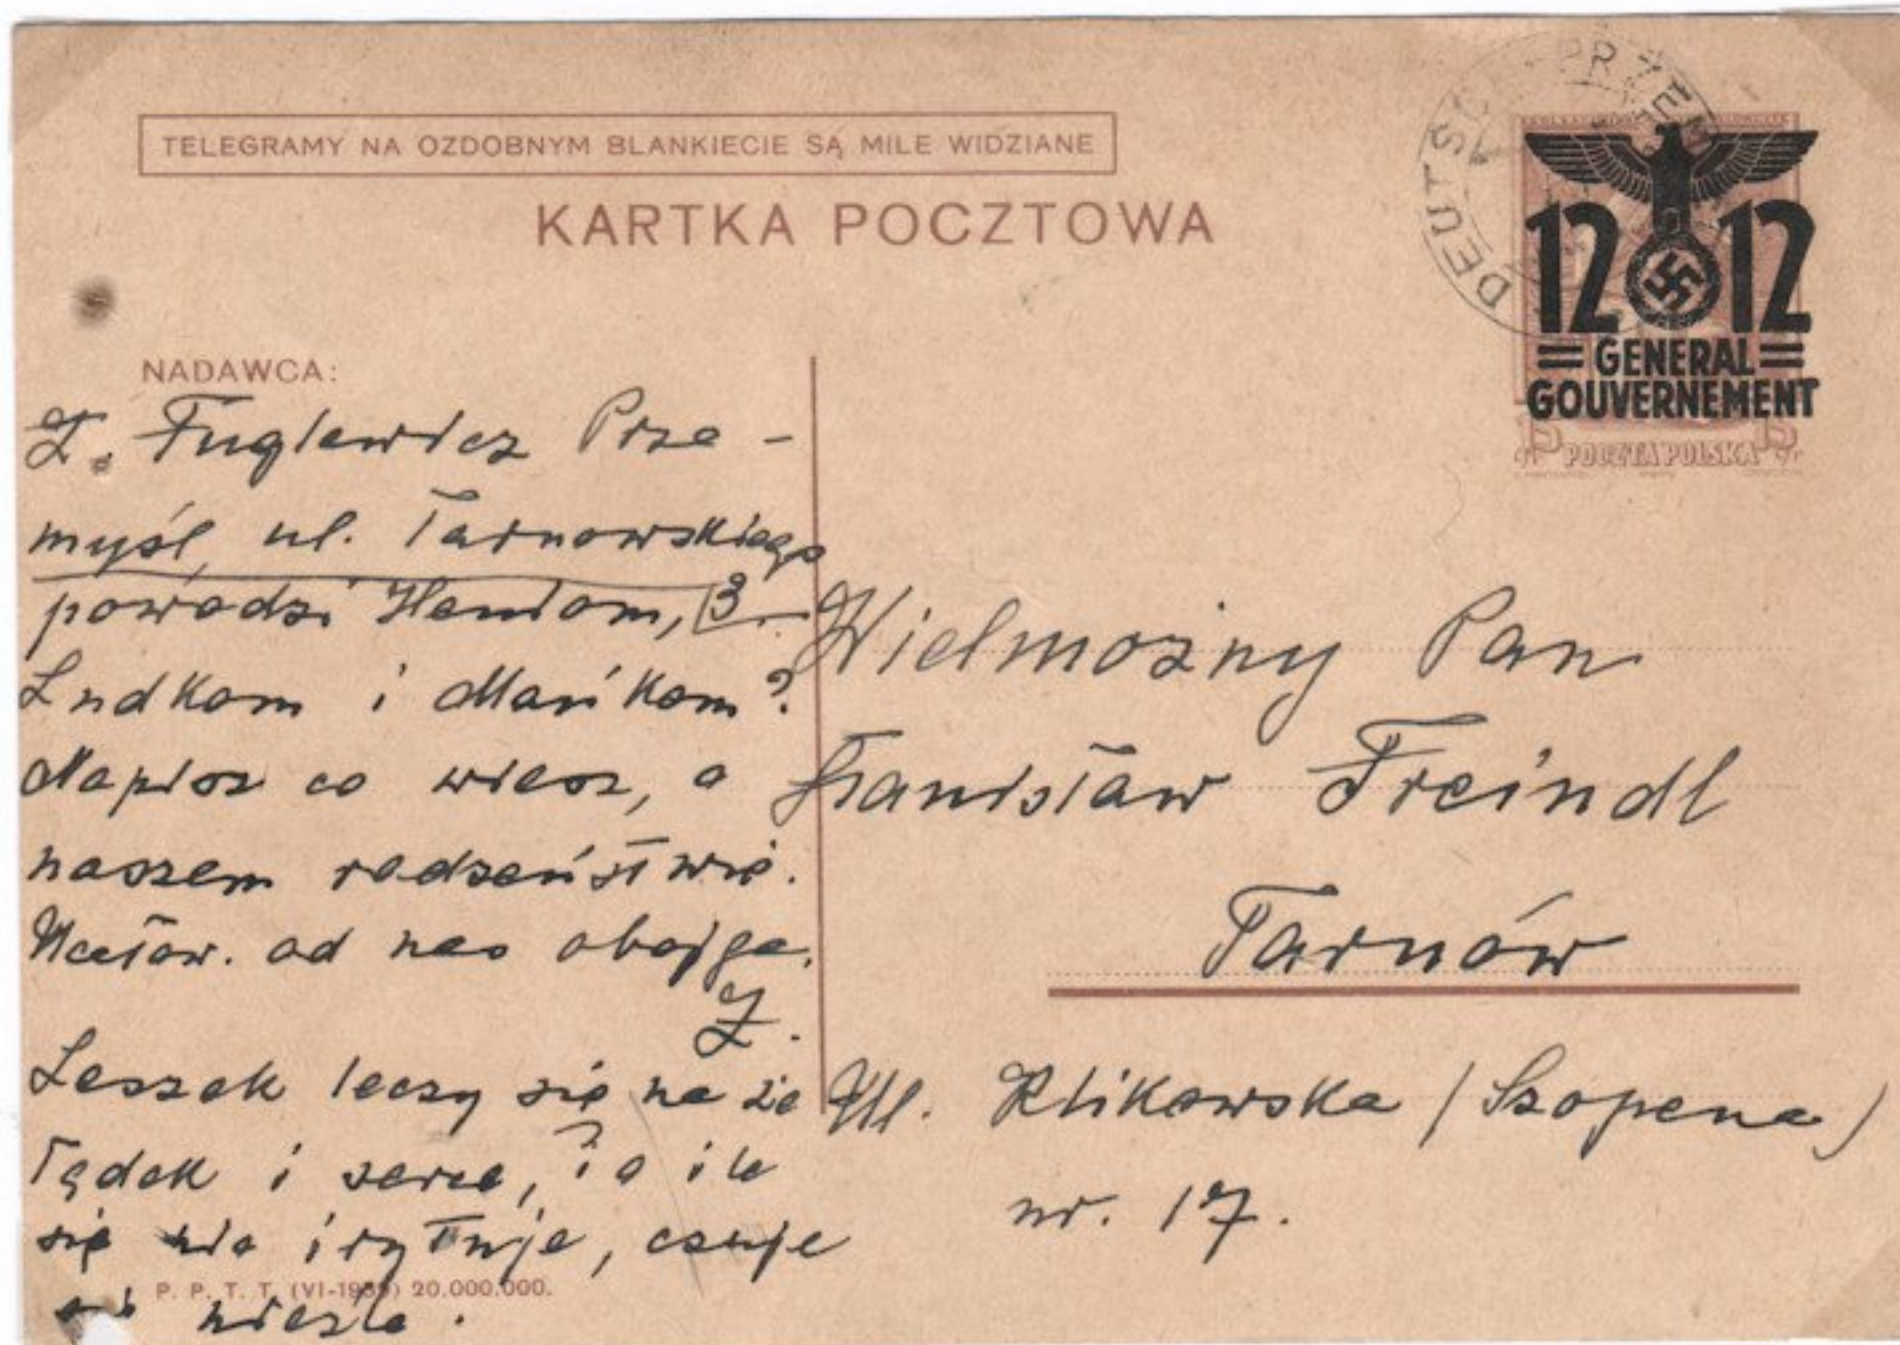 TELEGRAMY NA OZDOBNYM BLANKIECIE SĄ MILE WIDZIANE
KARTKA POCZTOWA
DEUTSCH PRZEM
12 12
GENERAL
GOUVERNEMENT
15 gr POCZTA POLSKA 15 gr
NADAWCA:
Z. Fuglewicz Prze-
myśl, ul. Tarnowskiego
3.
powodzi Heniom,
Ludkom i Mańkom?
Napisz co wiesz, o
naszem rodzeństwie.
Ucałow. od nas obojga.
Z.
Leszek leczy się na żo
łądek i serce, i o ile
się nie irytuje, czuje
się nieźle.
P. P. T. T. (VI-1939) 20.000.000.
Wielmożny Pan
Stanisław Freindl
Tarnów
Ul. Klikowska (Szopena)
nr. 17.